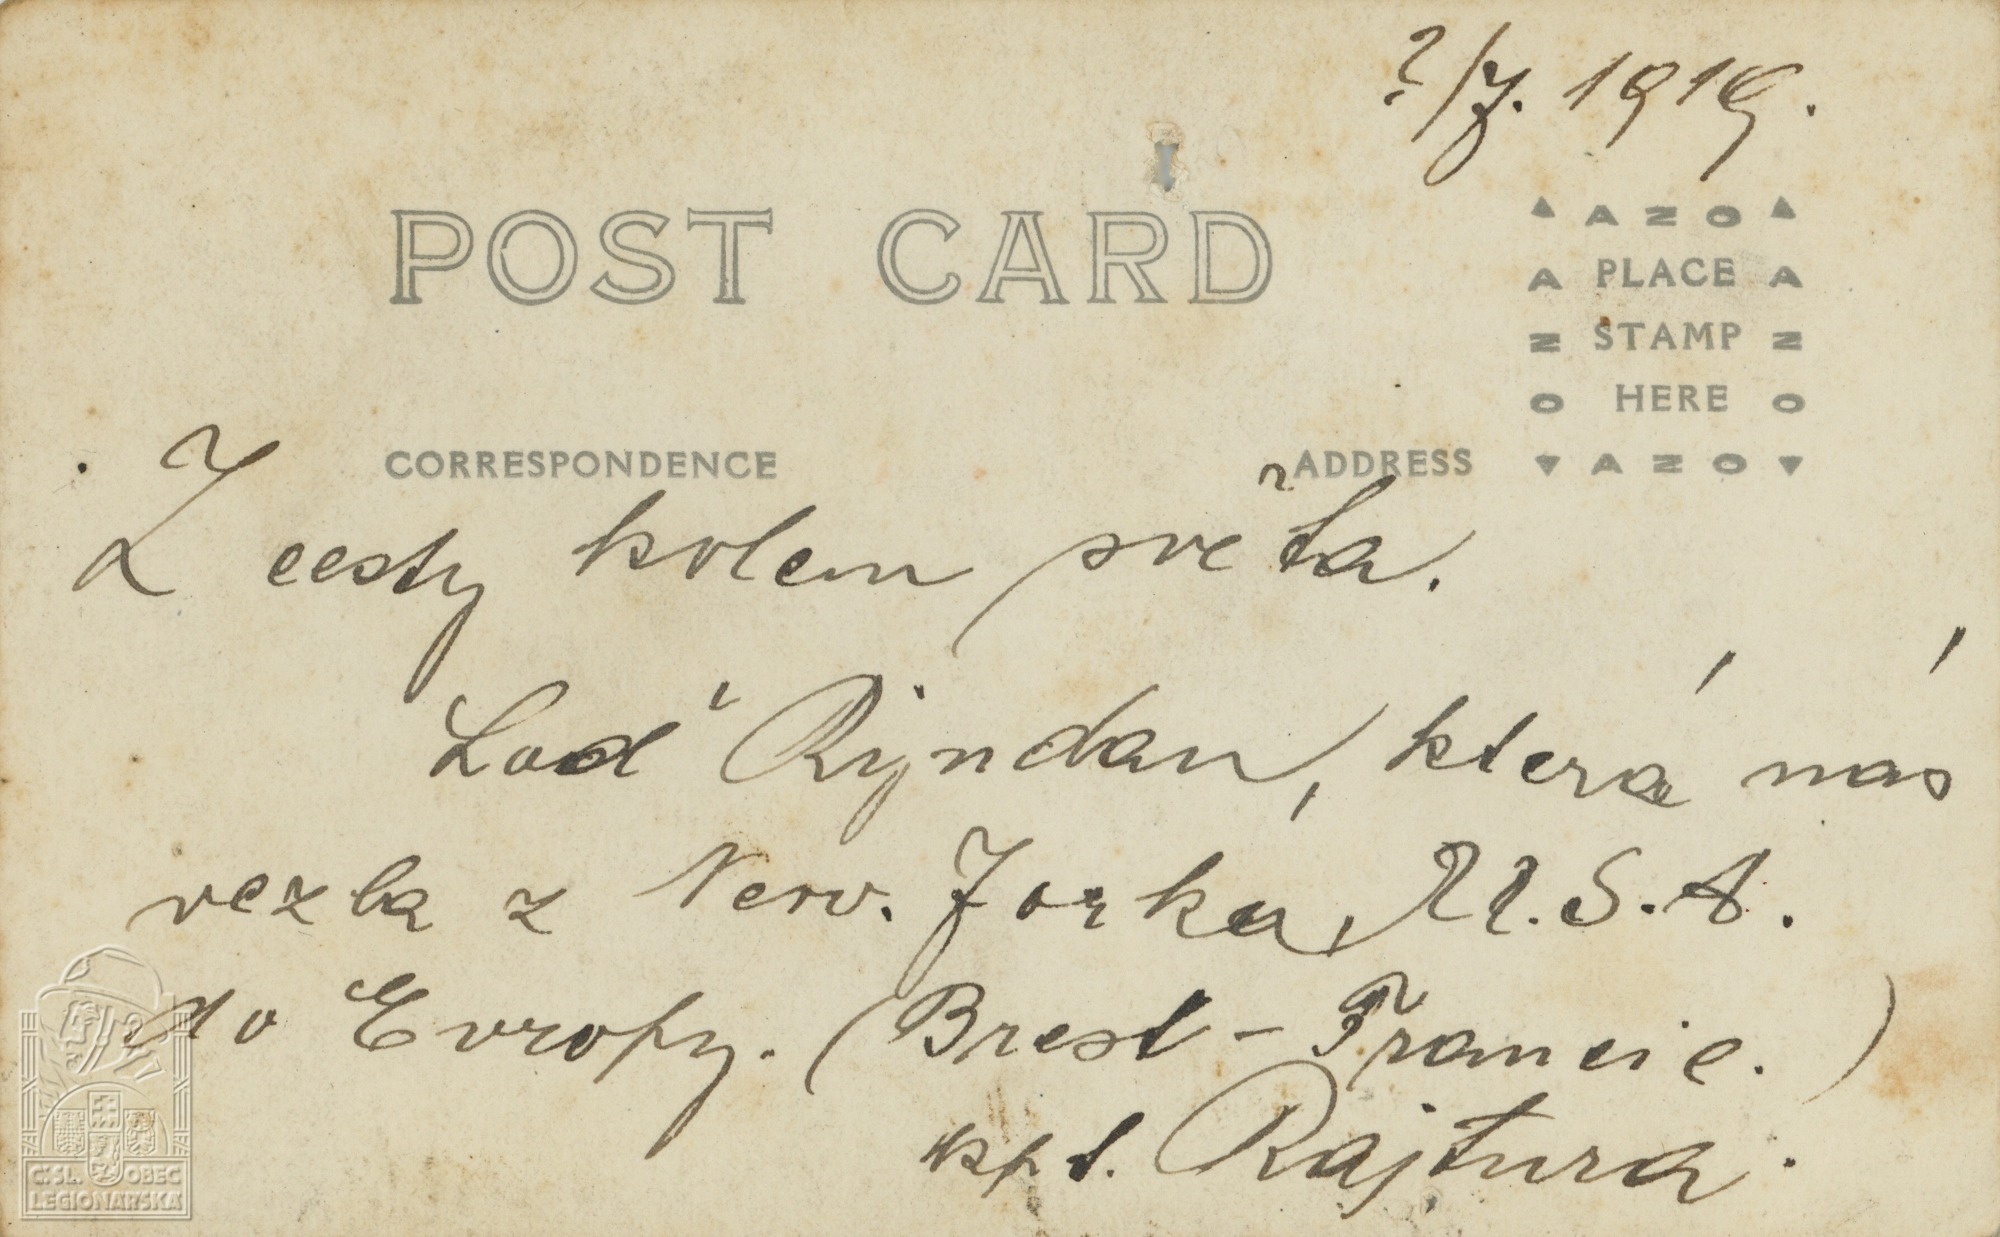 ?/7. 1919.
POST CARD
AZO
A PLACE A
N STAMP N
O HERE O
AZO
CORRESPONDENCE ADDRESS
Z cesty kolem světa.
Loď Rijndan, která nás
vezla z New. Jorku, U.S.A.
do Evropy. (Brest - Francie.)
kpt. Rajtura.
Č.SL. OBEC
LEGIONÁŘSKÁ